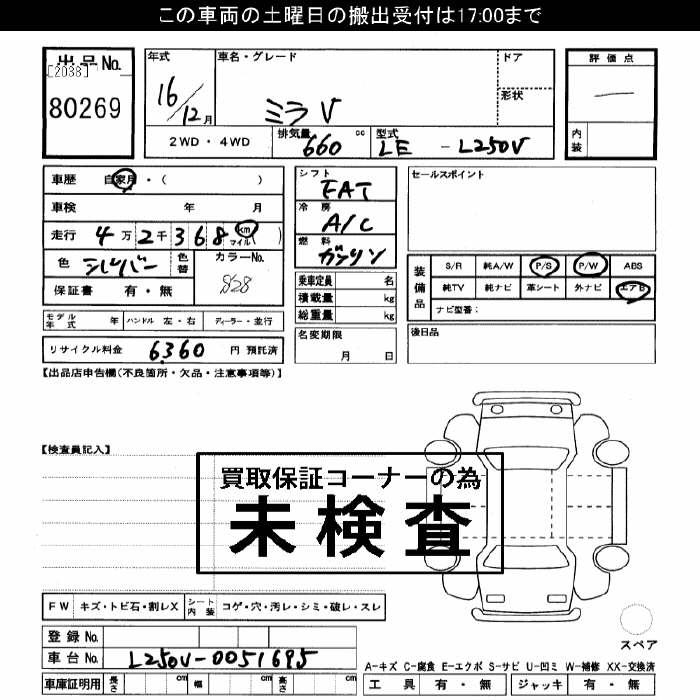 この車両の土曜日の搬出受付は17:00まで
出品No. 年式 車名・グレード ドア 評価点
[2038]
80269 16/12月 ミラ V 形状 —
2WD・4WD 排気量 660 cc 型式 LE - L250V 内装
車歴 自家用・( ) シフト FAT セールスポイント
車検 年 月 冷房 A/C
走行 4万2千368 km マイル( ) 燃料 ガソリン
色 シルバー 色替 カラーNo. S28
保証書 有・無
乗車定員 名
積載量 kg
総重量 kg
装備品 S/R 純A/W P/S P/W ABS
純TV 純ナビ 革シート 外ナビ エアB
ナビ型番:
モデル年式 年 ハンドル 左・右 ディーラー・並行
名変期限 月 日
後日品
リサイクル料金 6360 円 預託済
【出品店申告欄(不良箇所・欠品・注意事項等)】
【検査員記入】
買取保証コーナーの為
未検査
FW キズ・トビ石・割レX シート内装 コゲ・穴・汚レ・シミ・破レ・スレ
登録No.
スペア
車台No. L250V-0051695
A-キズ C-腐食 E-エクボ S-サビ U-凹ミ W-補修 XX-交換済
車庫証明用 長さ cm 幅 cm 高さ cm 工具 有・無 ジャッキ 有・無